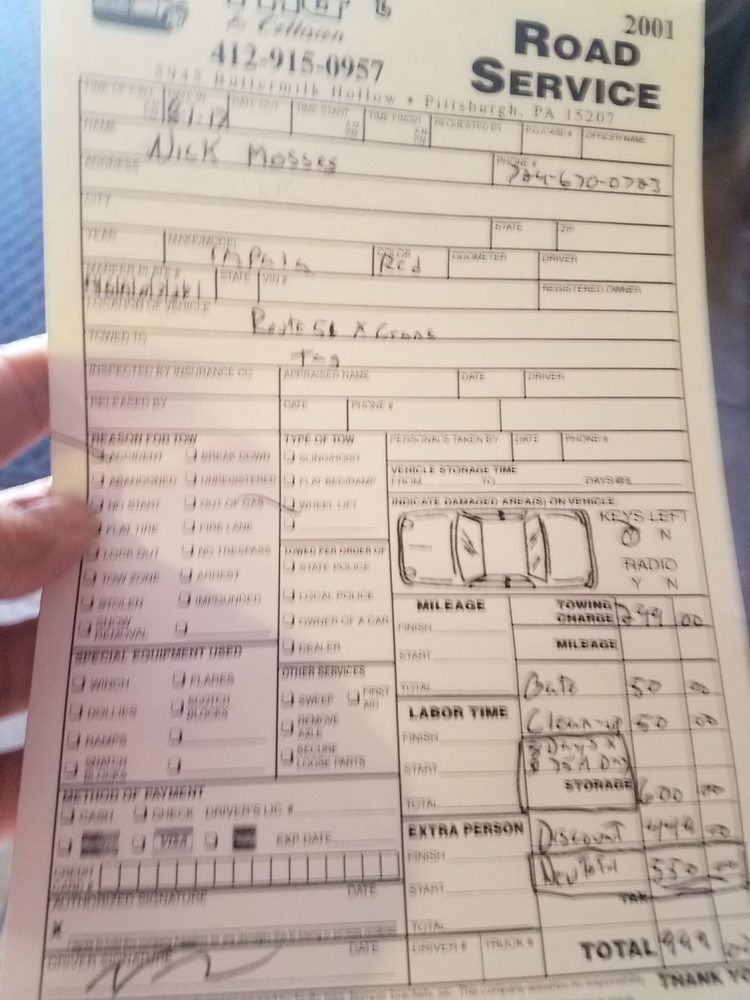 & Collision
412-915-0957
2001
ROAD
SERVICE
Buttermilk Hollow • Pittsburgh, PA 15207
TIME OF CALL DATE IN DATE OUT TIME START TIME FINISH REQUESTED BY PO/CASE # OFFICER NAME
NAME NICK MOSSES PHONE # 724-670-0723
ADDRESS
CITY STATE ZIP
YEAR MAKE/MODEL IMPALA COLOR Red ODOMETER DRIVER
MARKER PLATE # STATE VIN # REGISTERED OWNER
LOCATION OF VEHICLE Route 51 X
TOWED TO
INSPECTED BY INSURANCE CO. APPRAISER NAME DATE DRIVER
RELEASED BY DATE PHONE #
REASON FOR TOW TYPE OF TOW PERSONALS TAKEN BY DATE PHONE #
ACCIDENT BREAK DOWN SLING/HOIST VEHICLE STORAGE TIME
ABANDONED UNREGISTERED FLAT BED/RAMP FROM TO DAYS @ $
NO START OUT OF GAS WHEEL LIFT INDICATE DAMAGED AREA(S) ON VEHICLE:
FLAT TIRE FIRE LANE KEYS LEFT
Y N
LOCK OUT NO TRESPASS TOWED PER ORDER OF
TOW ZONE ARREST STATE POLICE RADIO
STOLEN IMPOUNDED LOCAL POLICE Y N
SNOW REMOVAL OWNER OF A CAR MILEAGE TOWING CHARGE 299 00
DEALER FINISH MILEAGE
SPECIAL EQUIPMENT USED START
WINCH FLARES OTHER SERVICES TOTAL Gate 50 00
DOLLIES SCOTCH BLOCKS SWEEP FIRST AID LABOR TIME Clean-up 50 00
RAMPS REMOVE AXLE FINISH 8 Days X
SNATCH BLOCKS SECURE LOOSE PARTS START $ 75 A Day
STORAGE 600 00
METHOD OF PAYMENT TOTAL
CASH CHECK DRIVER'S LIC. # EXTRA PERSON Discount 449 00
VISA EXP. DATE FINISH
CREDIT CARD # START New Total 550 00
AUTHORIZED SIGNATURE DATE TAX
X TOTAL
DRIVER SIGNATURE DATE DRIVER # TRUCK # TOTAL 999 00
THANK YO